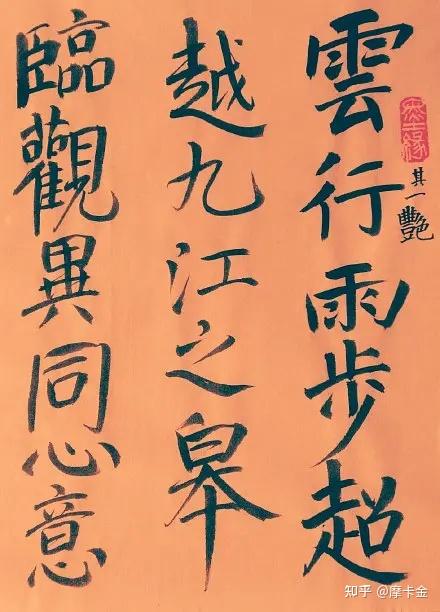 其一艷
雲行雨步超
越九江之皋
臨觀異同心意
知乎 @摩卡金